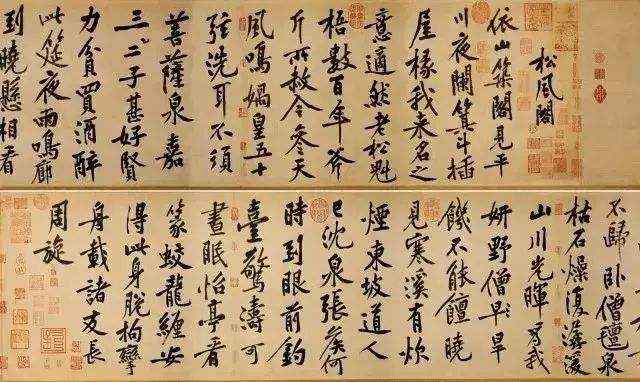 松風閣
依山築閣見平
川夜闌箕斗插
屋椽我来名之
意適然老松魁
梧數百年斧
斤所赦今参天
風鳴媧皇五十
弦洗耳不須
菩薩泉嘉
三二子甚好賢
力貧買酒醉
此筵夜雨鳴廊
到曉懸相看
不歸卧僧氈泉
枯石燥復潺湲
山川光暉為我
妍野僧早旱
饑不能饘曉
見寒溪有炊
煙東坡道人
已沈泉張侯何
時到眼前釣
臺驚濤可
晝眠怡亭看
篆蛟龍纏安
得此身脫拘攣
舟載諸友長
周旋